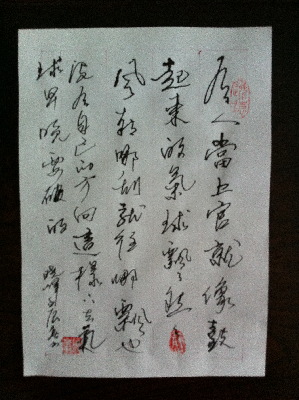 有人當上官就像鼓
起來的氣球飄飄然
風朝哪刮就往哪飄也
沒有自己的方向這樣下去氣
球早晚要破的